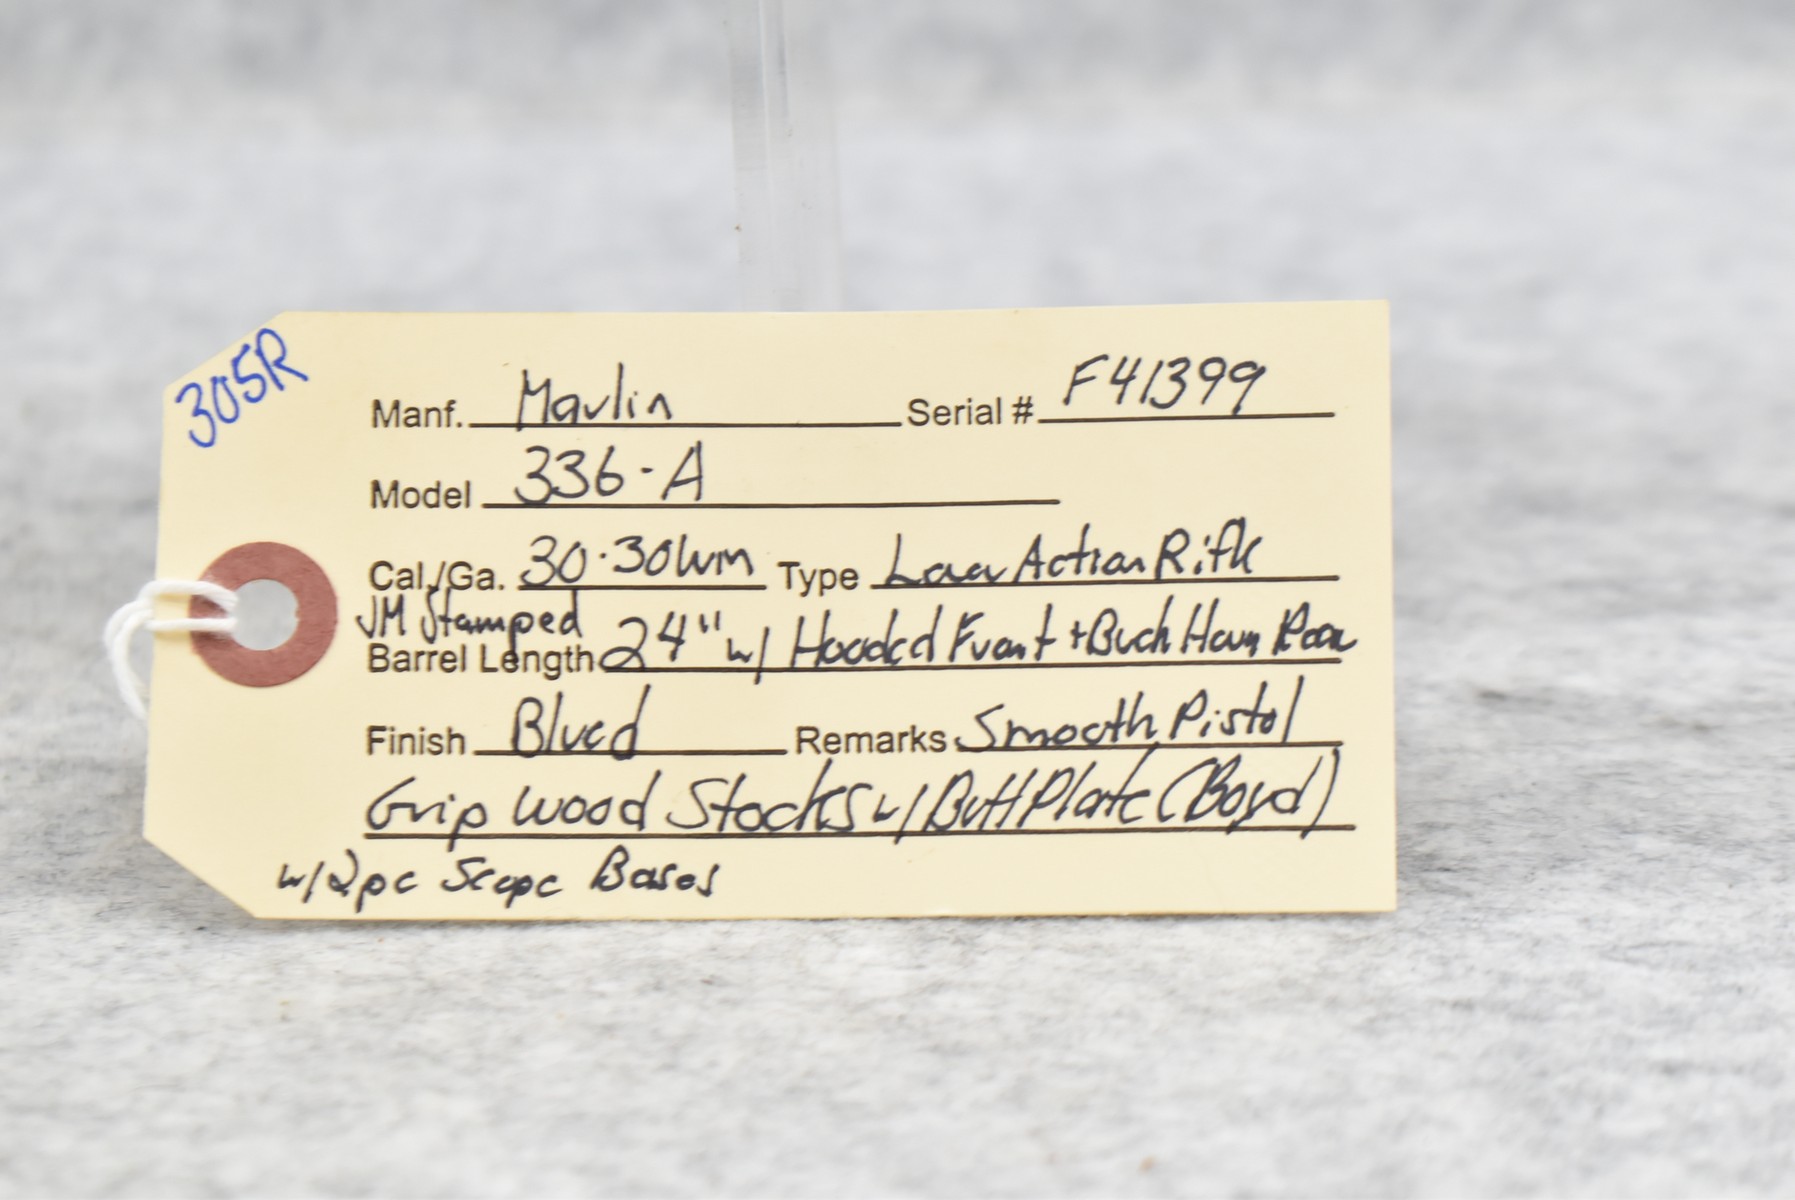 305R
Manf. Marlin Serial # F41399
Model 336-A
Cal./Ga. 30-30Win Type Lever Action Rifle
JM Stamped
Barrel Length 24" w/ Hooded Front + Buck Horn Rear
Finish Blued Remarks Smooth Pistol
Grip Wood Stocks w/ Butt Plate (Boyd)
w/ 2pc Scope Bases